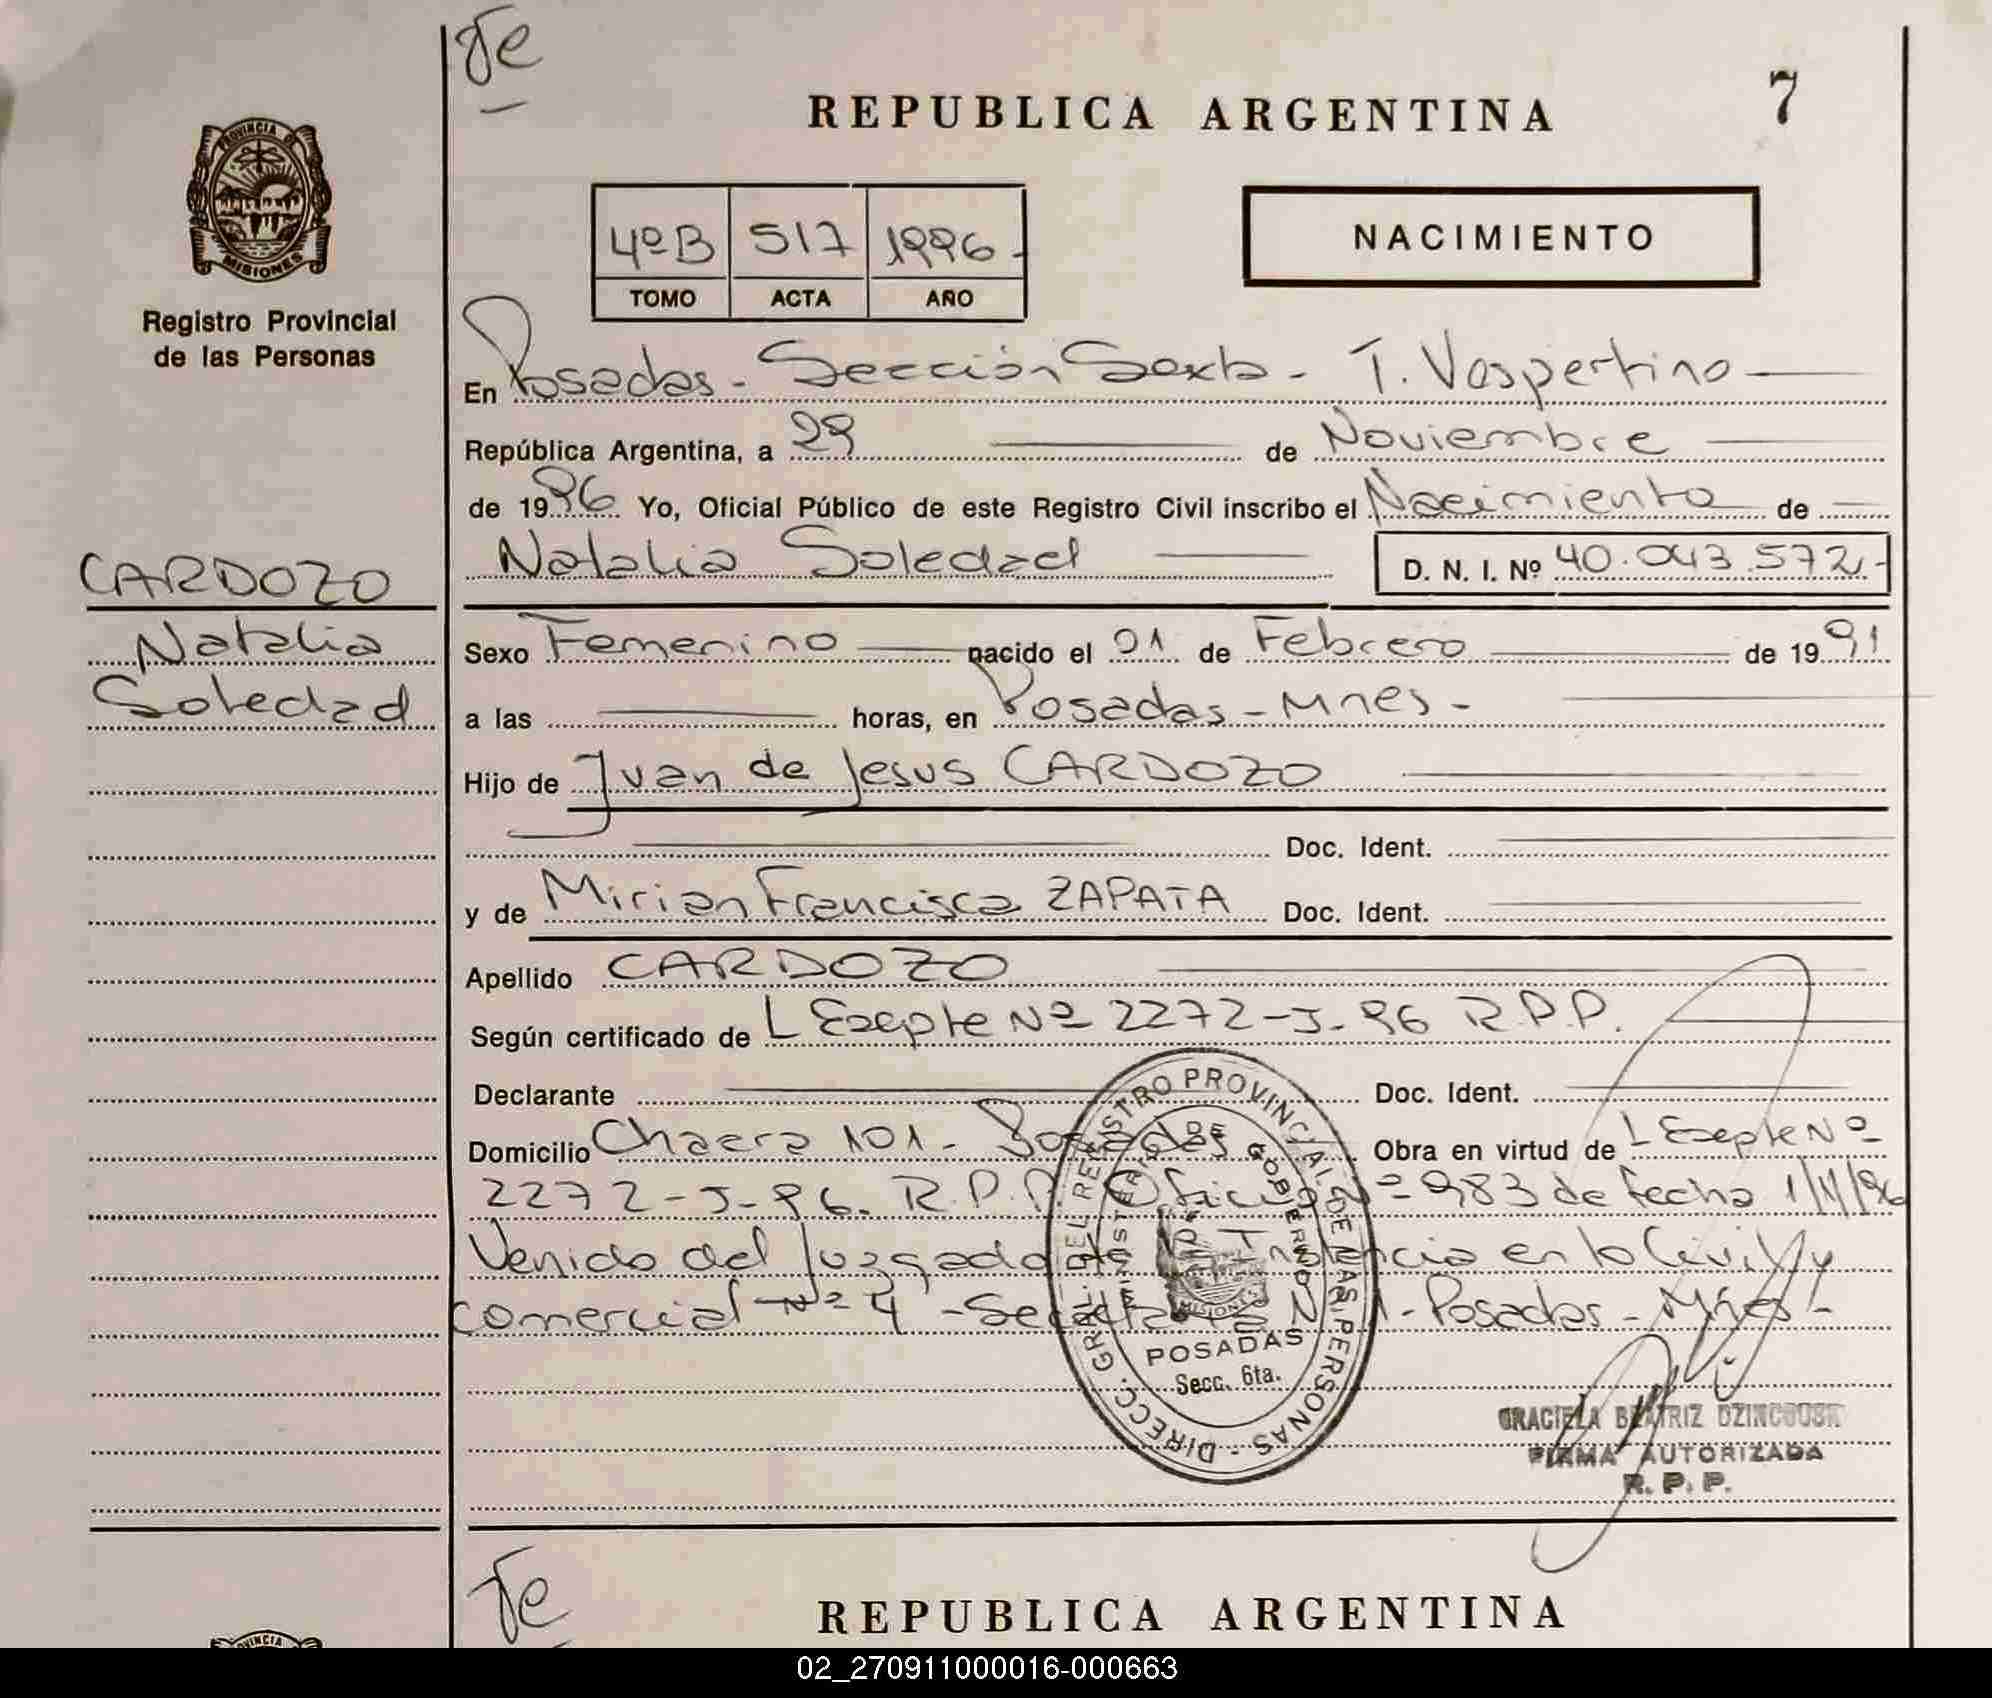 Te
REPUBLICA ARGENTINA
7
PROVINCIA DE
MISIONES
Registro Provincial
de las Personas
4ºB 517 1996-
TOMO ACTA AÑO
NACIMIENTO
En Posadas - Sección Sexta - T. Vespertino
República Argentina, a 29 de Noviembre
de 1996 Yo, Oficial Público de este Registro Civil inscribo el Nacimiento de
Natalia Soledad D. N. I. Nº 40.043.572.-
CARDOZO
Natalia
Soledad
Sexo Femenino nacido el 01 de Febrero de 1991
a las horas, en Posadas - Mnes -
Hijo de Juan de Jesus CARDOZO
Doc. Ident.
y de Mirian Francisca ZAPATA Doc. Ident.
Apellido CARDOZO
Según certificado de L Expte Nº 2272-J-96 R.P.P.
Declarante Doc. Ident.
Domicilio Chacra 101 - Posadas Obra en virtud de L Expte Nº
2272-J-96. R.P.P. Oficio Nº 983 de fecha 1/11/96
Venido del Juzgado de 1ª Instancia en lo Civil y
Comercial Nº 4 - Secretaria Nº 1 - Posadas - Mnes -
DIRECC. GRAL. DEL REGISTRO PROVINCIAL DE LAS PERSONAS -
MINISTERIO DE GOBIERNO
MISIONES
POSADAS
Secc. 6ta.
GRACIELA BEATRIZ
FIRMA AUTORIZADA
R. P. P.
Te
REPUBLICA ARGENTINA
02_270911000016-000663